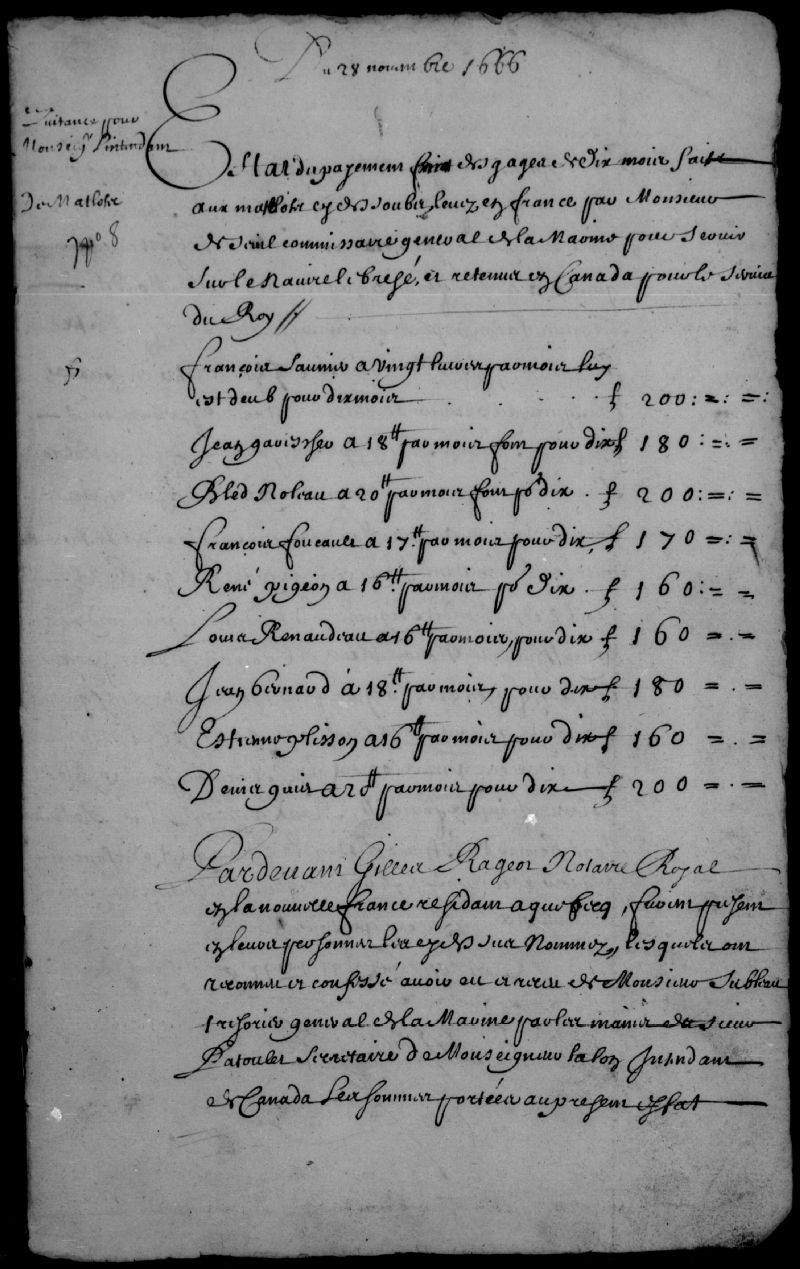 Du 28 novembre 1666
Quitance pour
Monseigr Lintendant
De Matlotz
N° 8
Estat du payement fait des gages de dix mois fait
aux matlotz cy dessoubz levez en france par Monsieur
de general de la Marine pour servir
Sur le Navire le et retenus en Canada pour le service
du Roy //
françois Saunier a vingt livres par mois luy
est deub pour dix mois £ 200 : = : = :
Jean a 18tt par mois font pour dix £ 180 : = : =
Noleau a 20tt par mois font pr dix . £ 200 : = : =
françois foucault a 17tt par mois pour dix £ 170 = : =
René pigeon a 16tt par mois pr dix . £ 160 : = =
Louis Renaudeau a 16tt par mois, pour dix £ 160 = . =
Jean bernard à 18tt par mois, pour dix £ 180 = . =
Estienne plisson a 16tt par mois pour dix £ 160 = . =
Denis a 20tt par mois pour dix £ 200 = . =
Pardevant Gilles Rageot Notaire Royal
en la nouvelle france residant a quebecq, furent presens
en leurs personnes les cy dessus Nommez, lesquels ont
reconnu et confessé avoir eu et receu de Monsieur
tresorier general de la Marine par les mains du sieur
Patoulet Secretaire de Monseigneur talon Intendant
de Canada les sommes portées au present estat